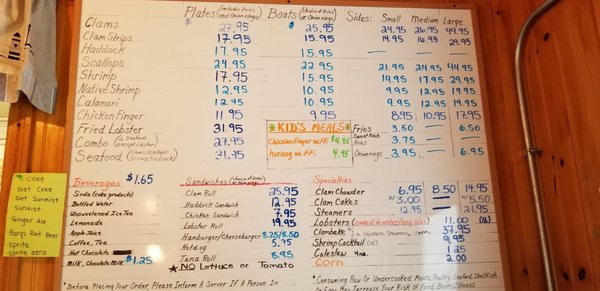 Plates (includes fries and onion rings) Boats (choice of fries or onion rings) Sides: Small Medium Large
Clams 27.95 $25.95 24.95 26.95 49.95
Clam Strips 17.95 15.95 14.95 16.95 29.95
Haddock 17.95 15.95
Scallops 24.95 22.95 21.95 24.95 44.95
Shrimp 17.95 15.95 14.95 17.95 29.95
Native Shrimp 12.95 10.95 9.95 12.95 19.95
Calamari 12.95 10.95 9.95 12.95 19.95
Chicken Finger 11.95 9.95 8.95 10.95 17.95
Fried Lobster 31.95
Combo 27.95
Seafood 31.95
*KID'S MEALS*
Chicken Finger w. FF. $4.95
Hotdog w. FF. 4.95
Fries 3.50 6.50
Sweet Potato Fries 3.75
Onion rings 3.95 6.95
COKE
Diet Coke
Diet Sunkist
Sunkist
Ginger Ale
Bargs Root Beer
Sprite
Sprite Zero
Beverages $1.65
Soda (coke products)
Bottled Water
Unsweetened Ice Tea
Lemonade
Apple Juice
Coffee, Tea
Hot Chocolate
Milk, Chocolate Milk $1.25
Sandwiches
Clam Roll 25.95
Haddock Sandwich 12.95
Chicken Sandwich 7.95
Lobster Roll 19.95
Hamburger/Cheeseburger 8.25/8.50
Hotdog 5.95
Tuna Roll 8.95
★NO Lettuce or Tomato
Specialties
Clam Chowder 6.95 8.50 14.95
Clam Cakes 3.00 5.50
Steamers 12.95 21.95
Lobsters 11.00
Clambake 37.95
Shrimp Cocktail (10) 9.95
Coleslaw 4oz. 1.25
Corn 2.00
*Before Placing Your Order, Please Inform A Server If A Person In
*Consuming Raw Or Undercooked Meats, Poultry, Seafood, Shellfish
Or Eggs May Increase Your Risk Of Food Borne Illness